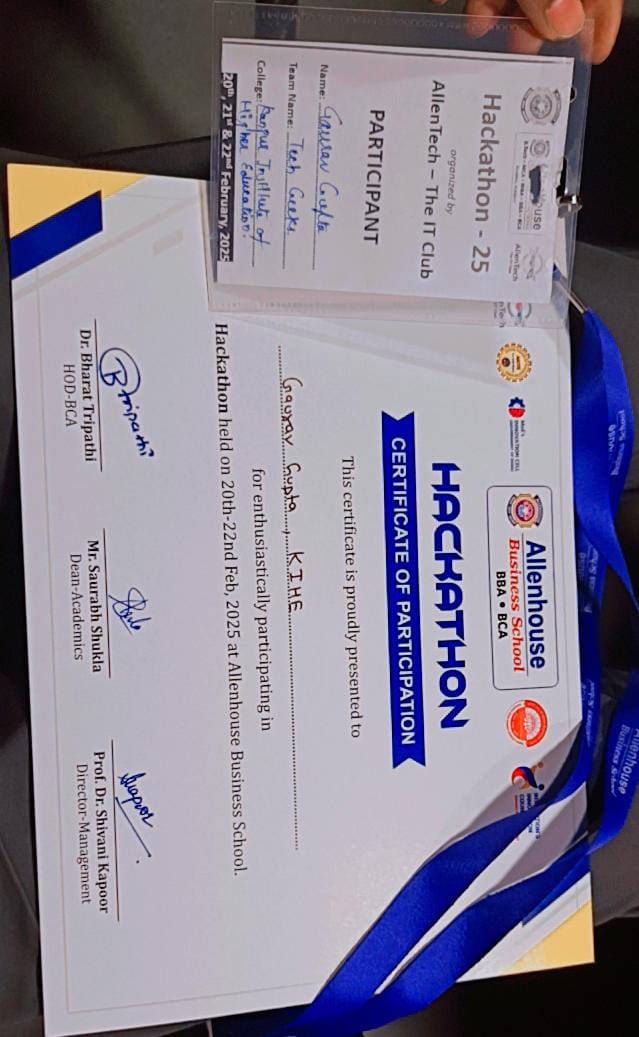 Hackathon - 25
organized by
AllenTech – The IT Club
PARTICIPANT
Name: Gaurav Gupta
Team Name: Tech Geeks
College: Kanpur Institute of
Higher Education.
20th, 21st & 22nd February, 2025
Allenhouse
Business School
BBA • BCA
HACKATHON
CERTIFICATE OF PARTICIPATION
This certificate is proudly presented to
Gaurav Gupta, KIHE
for enthusiastically participating in
Hackathon held on 20th-22nd Feb, 2025 at Allenhouse Business School.
BTripathi
Dr. Bharat Tripathi
HOD-BCA
Mr. Saurabh Shukla
Dean-Academics
Prof. Dr. Shivani Kapoor
Director-Management
Allenhouse
Business School